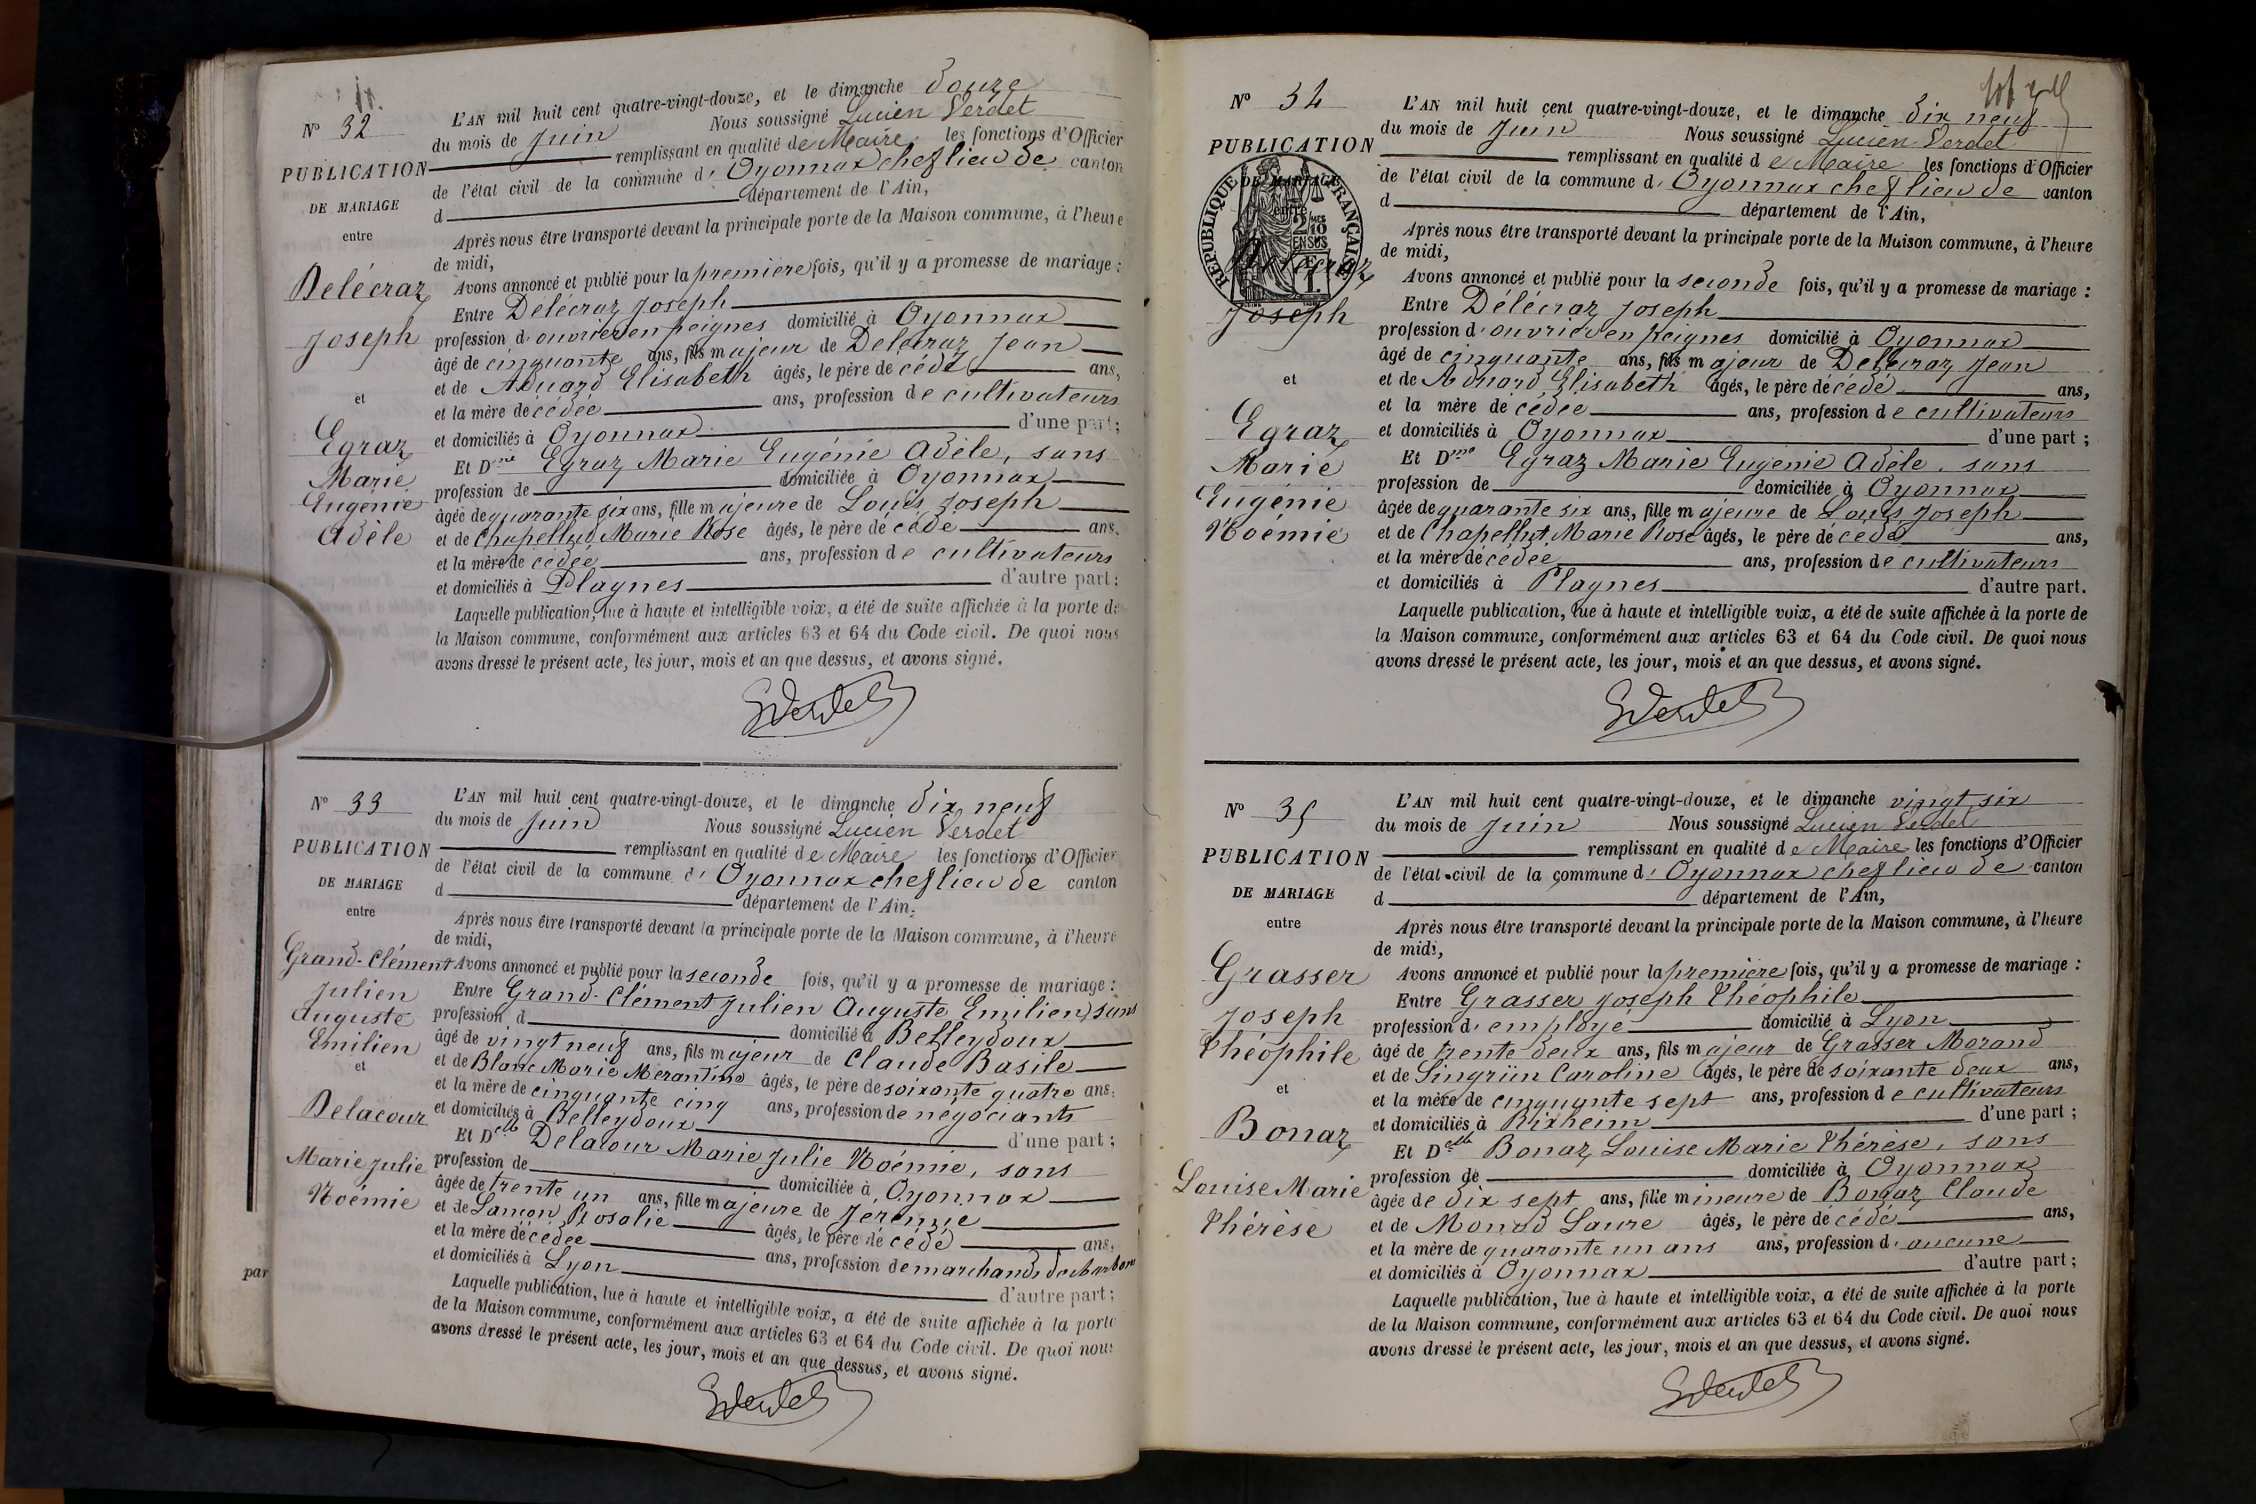 N° 32
PUBLICATION
DE MARIAGE
entre
Delécraz
Joseph
et
Egraz
Marie
Eugénie
Adèle
L'AN mil huit cent quatre-vingt-douze, et le dimanche douze
du mois de Juin Nous soussigné Lucien Verdet
remplissant en qualité de Maire les fonctions d'Officier
de l'état civil de la commune d'Oyonnax chef lieu de canton
d département de l'Ain,
Après nous être transporté devant la principale porte de la Maison commune, à l'heure
de midi,
Avons annoncé et publié pour la première fois, qu'il y a promesse de mariage :
Entre Delécraz Joseph
profession d'ouvrier en peignes domicilié à Oyonnax
âgé de cinquante ans, fils majeur de Delécraz Jean
et de Aduard Elisabeth âgés, le père décédé ans,
et la mère décédée ans, profession de cultivateurs
et domiciliés à Oyonnax d'une part ;
Et Dme Egraz Marie Eugénie Adèle, sans
profession de domiciliée à Oyonnax
âgée de quarante six ans, fille majeure de Louis Joseph
et de Chapellut Marie Rose âgés, le père décédé ans.
et la mère décédée ans, profession de cultivateurs
et domiciliés à Plagnes d'autre part :
Laquelle publication, lue à haute et intelligible voix, a été de suite affichée à la porte de
la Maison commune, conformément aux articles 63 et 64 du Code civil. De quoi nous
avons dressé le présent acte, les jour, mois et an que dessus, et avons signé.
LVerdet
N° 33
PUBLICATION
DE MARIAGE
entre
Grand-Clément
Julien
Auguste
Emilien
et
Delacour
Marie Julie
Noémie
L'AN mil huit cent quatre-vingt-douze, et le dimanche dix neuf
du mois de Juin Nous soussigné Lucien Verdet
remplissant en qualité de Maire les fonctions d'Officier
de l'état civil de la commune d'Oyonnax chef lieu de canton
d département de l'Ain,
Après nous être transporté devant la principale porte de la Maison commune, à l'heure
de midi,
Avons annoncé et publié pour la seconde fois, qu'il y a promesse de mariage :
Entre Grand-Clément Julien Auguste Emilien, sans
profession d domicilié à Belleydoux
âgé de vingt neuf ans, fils majeur de Claude Basile
et de Blanc Marie Merantine âgés, le père de soixante quatre ans.
et la mère de cinquante cinq ans, profession de négociants
et domiciliés à Belleydoux d'une part ;
Et Delle Delacour Marie Julie Noémie, sans
profession de domiciliée à Oyonnax
âgée de trente un ans, fille majeure de Jérémie
et de Lançon Rosalie âgés, le père décédé ans,
et la mère décédée ans, profession de marchands de charbons
et domiciliés à Lyon d'autre part ;
Laquelle publication, lue à haute et intelligible voix, a été de suite affichée à la porte
de la Maison commune, conformément aux articles 63 et 64 du Code civil. De quoi nous
avons dressé le présent acte, les jour, mois et an que dessus, et avons signé.
LVerdet
par
N° 34
PUBLICATION
DE MARIAGE
entre
RÉPUBLIQUE FRANÇAISE
2/10 EN SUS
Joseph
et
Egraz
Marie
Eugénie
Noémie
L'AN mil huit cent quatre-vingt-douze, et le dimanche dix neuf
du mois de Juin Nous soussigné Lucien Verdet
remplissant en qualité de Maire les fonctions d'Officier
de l'état civil de la commune d'Oyonnax chef lieu de canton
d département de l'Ain,
Après nous être transporté devant la principale porte de la Maison commune, à l'heure
de midi,
Avons annoncé et publié pour la seconde fois, qu'il y a promesse de mariage :
Entre Délécraz Joseph
profession d'ouvrier en peignes domicilié à Oyonnax
âgé de cinquante ans, fils majeur de Delécraz Jean
et de Aduard Elisabeth âgés, le père décédé ans,
et la mère décédée ans, profession de cultivateurs
et domiciliés à Oyonnax d'une part ;
Et Dme Egraz Marie Eugénie Adèle, sans
profession de domiciliée à Oyonnax
âgée de quarante six ans, fille majeure de Louis Joseph
et de Chapellut Marie Rose âgés, le père décédé ans,
et la mère décédée ans, profession de cultivateurs
et domiciliés à Plagnes d'autre part.
Laquelle publication, lue à haute et intelligible voix, a été de suite affichée à la porte de
la Maison commune, conformément aux articles 63 et 64 du Code civil. De quoi nous
avons dressé le présent acte, les jour, mois et an que dessus, et avons signé.
LVerdet
N° 35
PUBLICATION
DE MARIAGE
entre
Grasser
Joseph
Théophile
et
Bonaz
Louise Marie
Thérèse
L'AN mil huit cent quatre-vingt-douze, et le dimanche vingt six
du mois de Juin Nous soussigné Lucien Verdet
remplissant en qualité de Maire les fonctions d'Officier
de l'état civil de la commune d'Oyonnax chef lieu de canton
d département de l'Ain,
Après nous être transporté devant la principale porte de la Maison commune, à l'heure
de midi,
Avons annoncé et publié pour la première fois, qu'il y a promesse de mariage :
Entre Grasser Joseph Théophile
profession d'employé domicilié à Lyon
âgé de trente deux ans, fils majeur de Grasser Morand
et de Singrün Caroline âgés, le père de soixante deux ans,
et la mère de cinquante sept ans, profession de cultivateurs
et domiciliés à Rixheim d'une part ;
Et Delle Bonaz Louise Marie Thérèse, sans
profession de domiciliée à Oyonnax
âgée de dix sept ans, fille mineure de Bonaz Claude
et de Monod Laure âgés, le père décédé ans,
et la mère de quarante un ans ans, profession d'aucune
et domiciliés à Oyonnax d'autre part ;
Laquelle publication, lue à haute et intelligible voix, a été de suite affichée à la porte
de la Maison commune, conformément aux articles 63 et 64 du Code civil. De quoi nous
avons dressé le présent acte, les jour, mois et an que dessus, et avons signé.
LVerdet